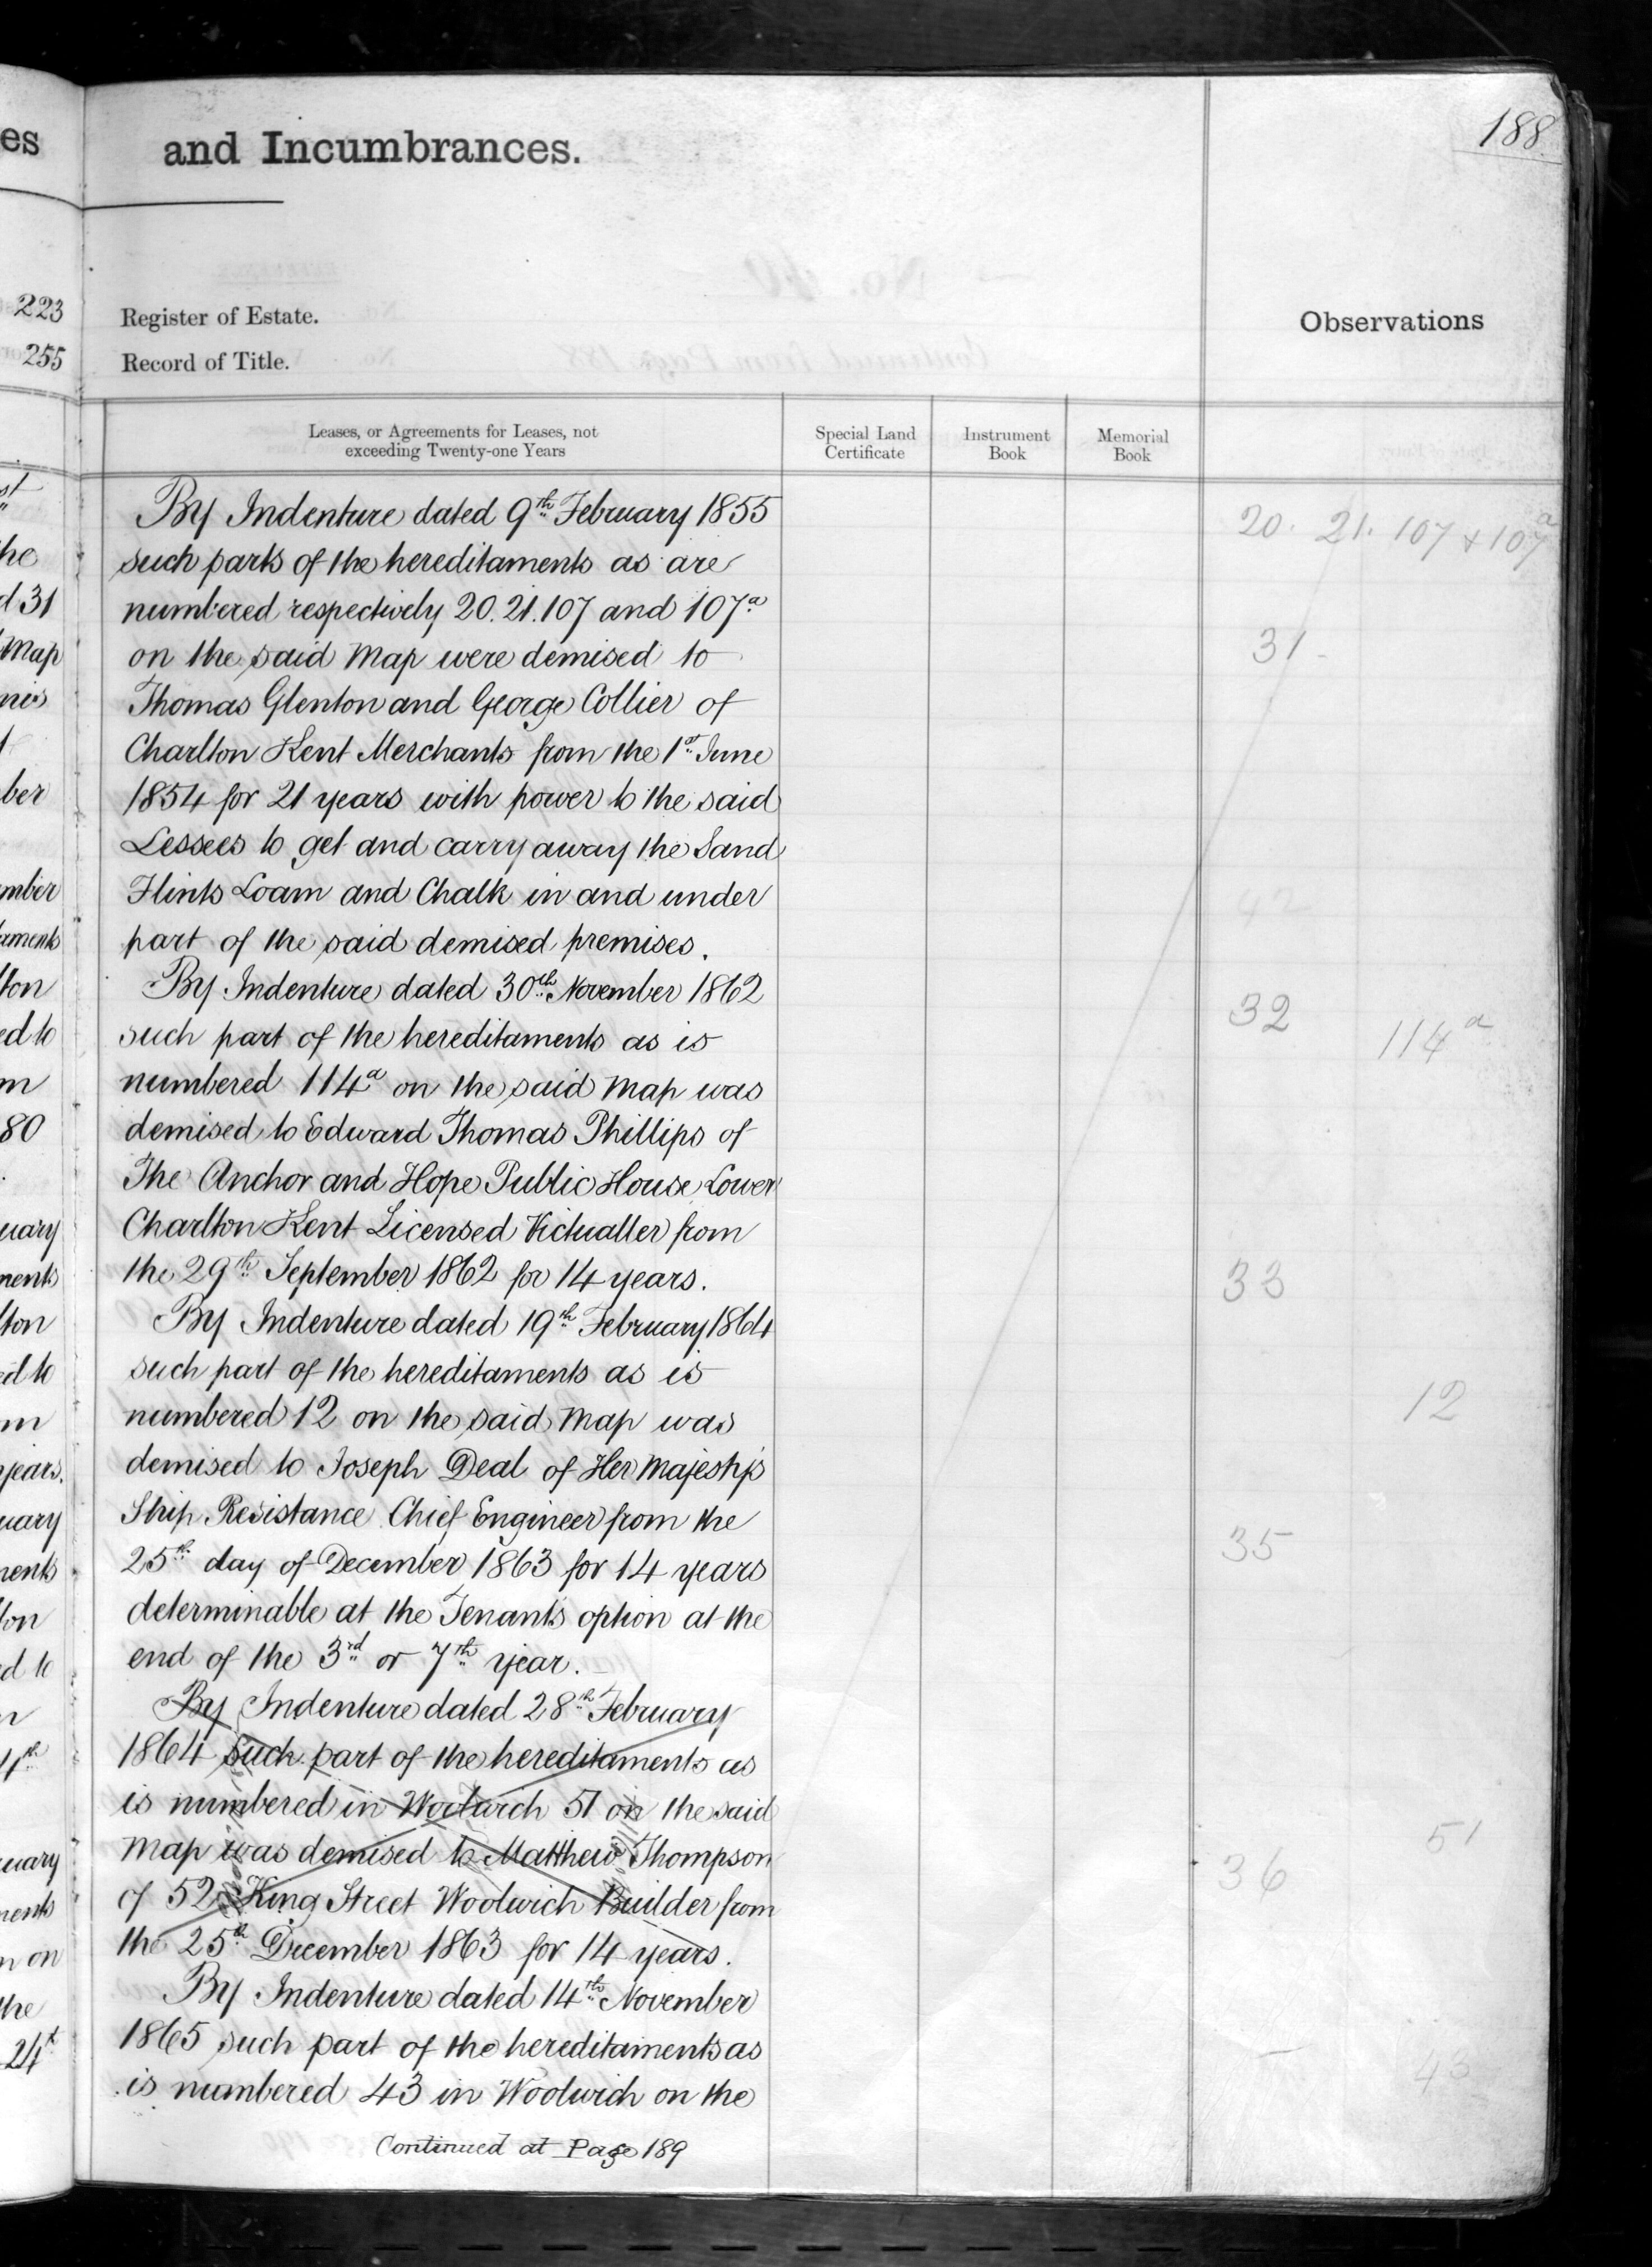 188.
es
and Incumbrances.
223
Register of Estate.
Observations
255
Record of Title.
Leases, or Agreements for Leases, not
exceeding Twenty-one Years
Special Land
Certificate
Instrument
Book
Memorial
Book
By Indenture dated 9th February 1855
20. 21. 107 + 107a
such parts of the hereditaments as are
numbered respectively 20. 21. 107 and 107a
on the said Map were demised to
31
Thomas Glenton and George Collier of
Charlton Kent Merchants from the 1st June
1854 for 21 years with power to the said
Lessees to get and carry away the Sand
Flints Loam and Chalk in and under
42
part of the said demised premises.
By Indenture dated 30th November 1862
32
such part of the hereditaments as is
114a
numbered 114a on the said Map was
demised to Edward Thomas Phillips of
The Anchor and Hope Public House Lower
Charlton Kent Licensed Victualler from
the 29th September 1862 for 14 years.
33
By Indenture dated 19th February 1864
such part of the hereditaments as is
numbered 12 on the said Map was
12
demised to Joseph Deal of Her Majesty's
Ship Resistance Chief Engineer from the
35
25th day of December 1863 for 14 years
determinable at the Tenant's option at the
end of the 3rd or 7th year.
By Indenture dated 28th February
1864 such part of the hereditaments as
is numbered in Woolwich 51 on the said
51
Map was demised to Matthew Thompson
36
of 52 King Street Woolwich Builder from
the 25th December 1863 for 14 years.
By Indenture dated 14th November
1865 such part of the hereditaments as
is numbered 43 in Woolwich on the
43
Continued at Page 189